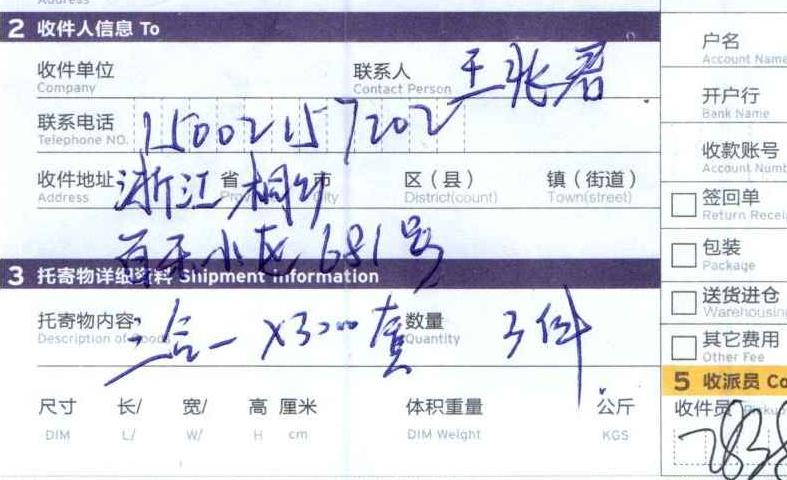 Address
2 收件人信息 To
收件单位 联系人 王张君
Company Contact Person
联系电话 15002157202
Telephone NO.
收件地址 浙江 省 桐乡 市 区（县） 镇（街道）
Address Province City District(count) Town(street)
百乐小区 681号
3 托寄物详细资料 Shipment Information
托寄物内容 三合一 X3000套 数量 3件
Description of goods Quantity
尺寸 长/ 宽/ 高 厘米 体积重量 公斤
DIM L/ W/ H cm DIM Weight KGS
户名
Account Name
开户行
Bank Name
收款账号
Account Numb
签回单
Return Recei
包装
Package
送货进仓
Warehousing
其它费用
Other Fee
5 收派员 Co
收件员